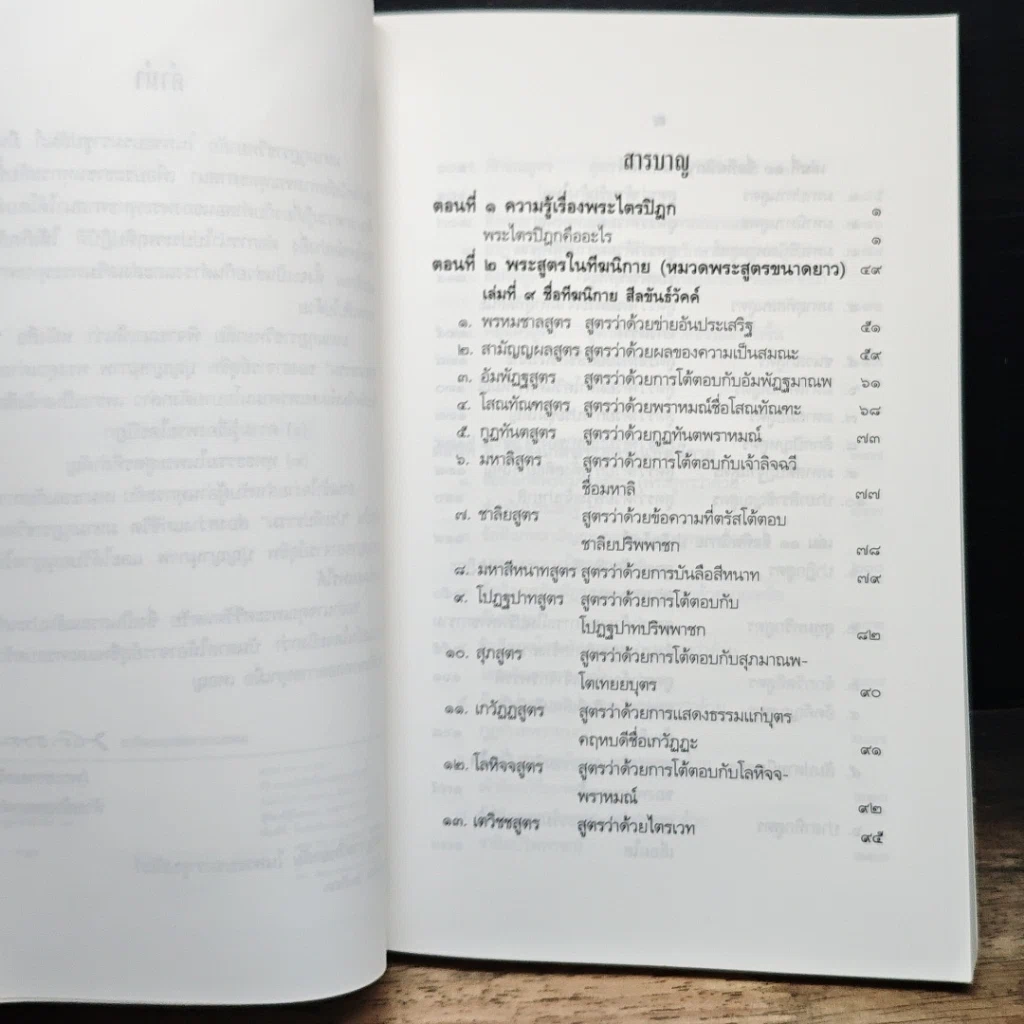 สารบาญ
ตอนที่ ๑ ความรู้เรื่องพระไตรปิฎก ๑
พระไตรปิฎกคืออะไร ๑
ตอนที่ ๒ พระสูตรในทีฆนิกาย (หมวดพระสูตรขนาดยาว) ๔๙
เล่มที่ ๙ ชื่อทีฆนิกาย สีลขันธ์วัคค์
๑. พรหมชาลสูตร สูตรว่าด้วยข่ายอันประเสริฐ ๕๑
๒. สามัญญผลสูตร สูตรว่าด้วยผลของความเป็นสมณะ ๕๙
๓. อัมพัฏฐสูตร สูตรว่าด้วยการโต้ตอบกับอัมพัฏฐมาณพ ๖๑
๔. โสณทัณฑสูตร สูตรว่าด้วยพราหมณ์ชื่อโสณทัณฑะ ๖๘
๕. กูฏทันตสูตร สูตรว่าด้วยกูฏทันตพราหมณ์ ๗๓
๖. มหาลิสูตร สูตรว่าด้วยการโต้ตอบกับเจ้าลิจฉวี
ชื่อมหาลิ ๗๗
๗. ชาลิยสูตร สูตรว่าด้วยข้อความที่ตรัสโต้ตอบ
ชาลิยปริพพาชก ๗๘
๘. มหาสีหนาทสูตร สูตรว่าด้วยการบันลือสีหนาท ๗๙
๙. โปฏฐปาทสูตร สูตรว่าด้วยการโต้ตอบกับ
โปฏฐปาทปริพพาชก ๘๒
๑๐. สุภสูตร สูตรว่าด้วยการโต้ตอบกับสุภมาณพ-
โตเทยยบุตร ๙๐
๑๑. เกวัฏฏสูตร สูตรว่าด้วยการแสดงธรรมแก่บุตร
คฤหบดีชื่อเกวัฏฏะ ๙๑
๑๒. โลหิจจสูตร สูตรว่าด้วยการโต้ตอบกับโลหิจจ-
พราหมณ์ ๙๒
๑๓. เตวิชชสูตร สูตรว่าด้วยไตรเวท ๙๕